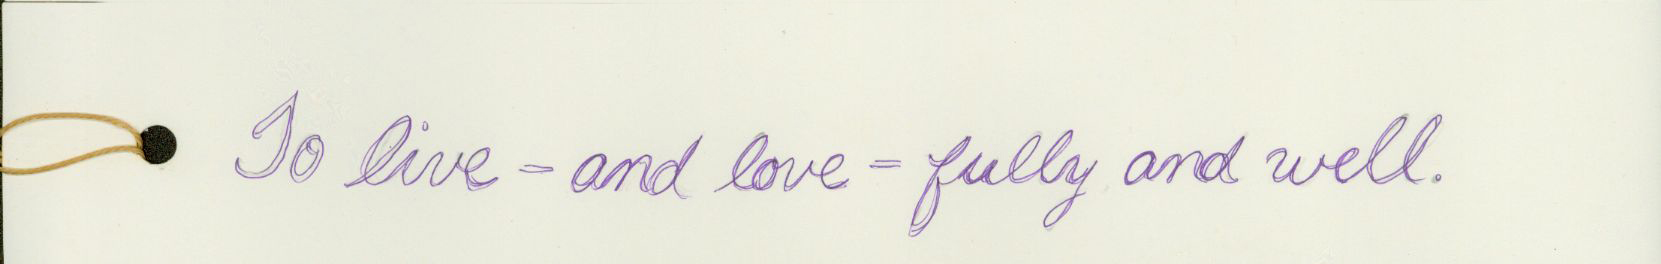 To live - and love - fully and well.